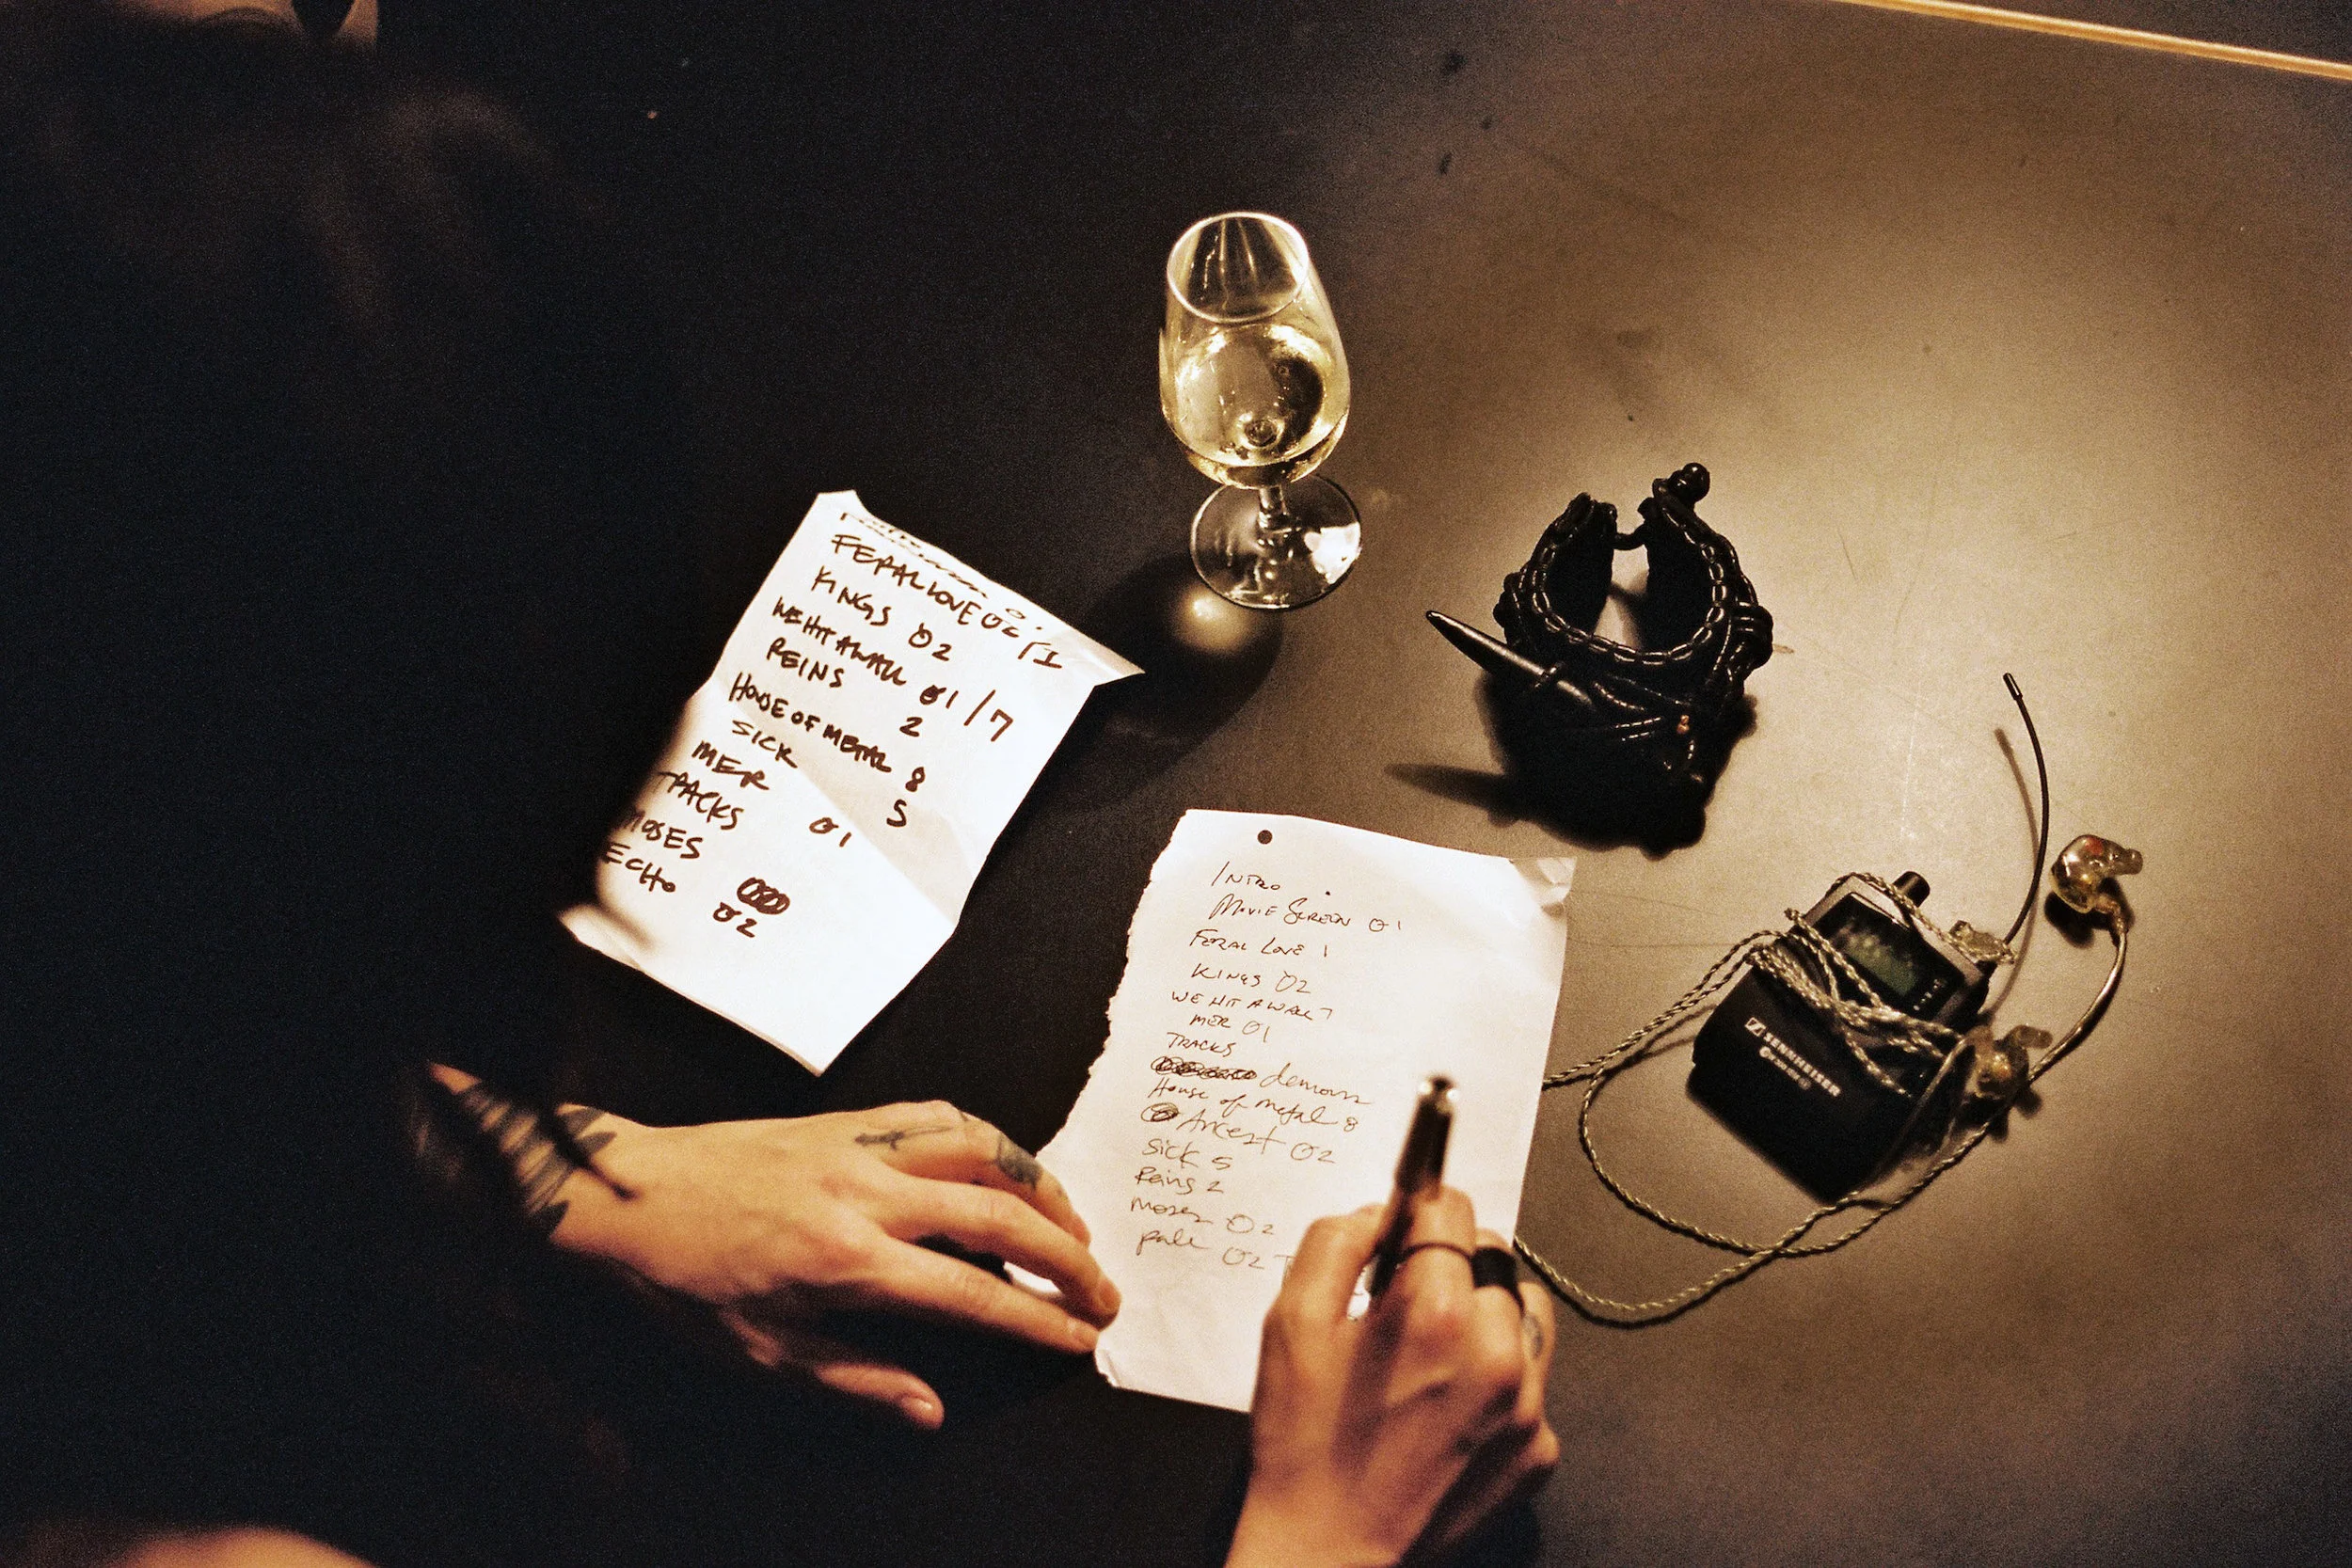 FERAL LOVE 02 / 1
KINGS 02
WE HIT A WALL 01 / 7
REINS 2
HOUSE OF METAL 8
SICK 5
MER 01
TRACKS
MOSES
ECHO 02
INTRO
MOVIE SCREEN 01
FERAL LOVE 1
KINGS 02
WE HIT A WALL 7
MER 01
TRACKS
demons
House of metal 8
Ancest 02
Sick 5
Reins 2
Moses 02
pale 02
SENNHEISER